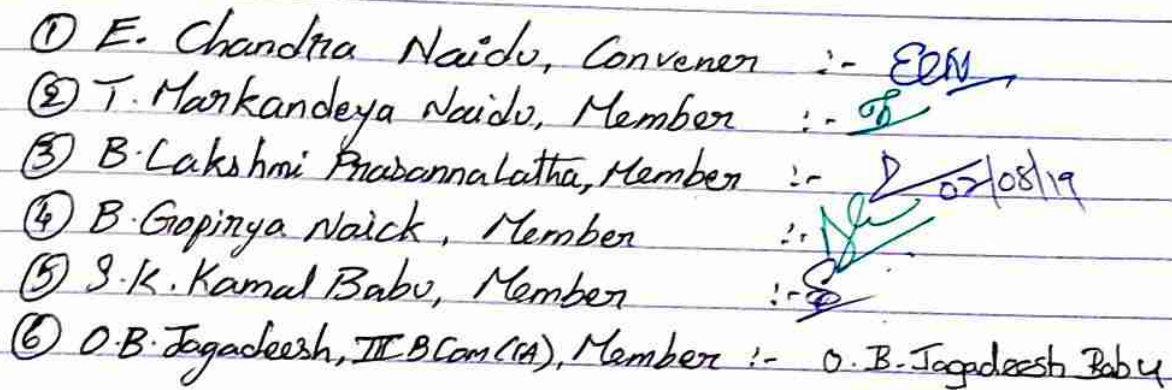 ① E. Chandra Naidu, Convener :- ECN
② T. Markandeya Naidu, Member :-
③ B. Lakshmi Prasanna Latha, Member :- 02/08/19
④ B. Gopinya Naick, Member :-
⑤ S.K. Kamal Babu, Member :-
⑥ O.B. Jagadeesh, III B Com (CA), Member :- O.B. Jagadeesh Babu